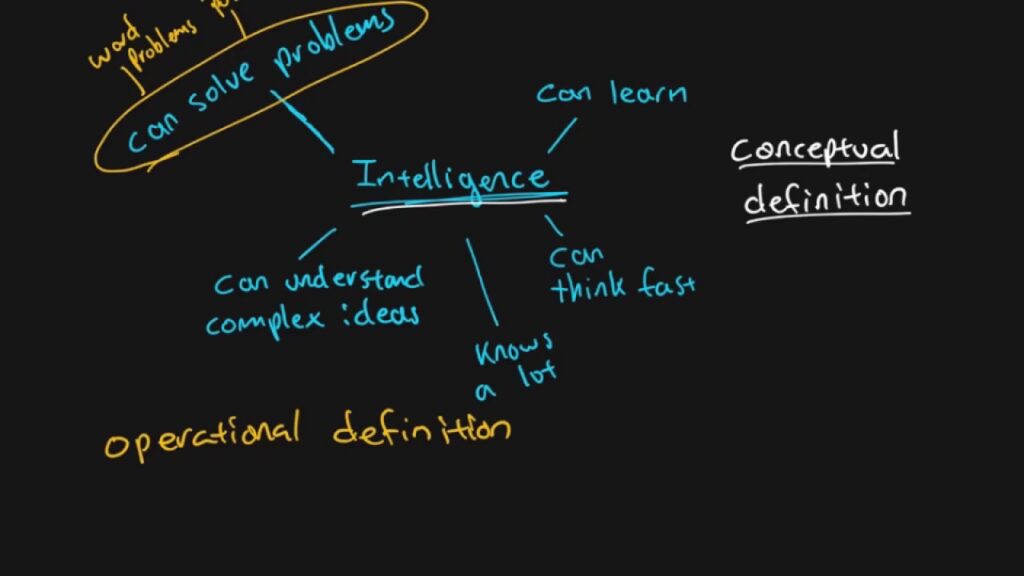 word
problems
can solve problems
can learn
Intelligence
conceptual
definition
can understand
complex ideas
can
think fast
knows
a lot
operational definition